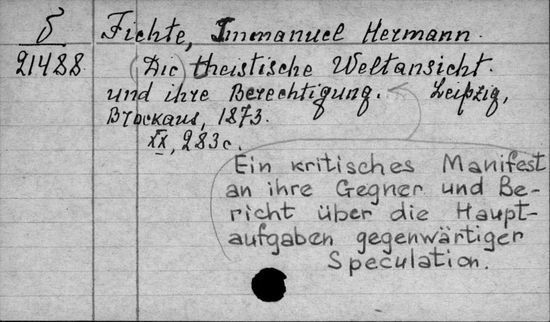 б
21488
Fichte, Immanuel Hermann.
Die theistische Weltansicht.
und ihre Berechtigung. Leipzig,
Brockaus, 1873.
XX, 283c.
Ein kritisches Manifest
an ihre Gegner und Be-
richt über die Haupt-
aufgaben gegenwärtiger
Speculation.